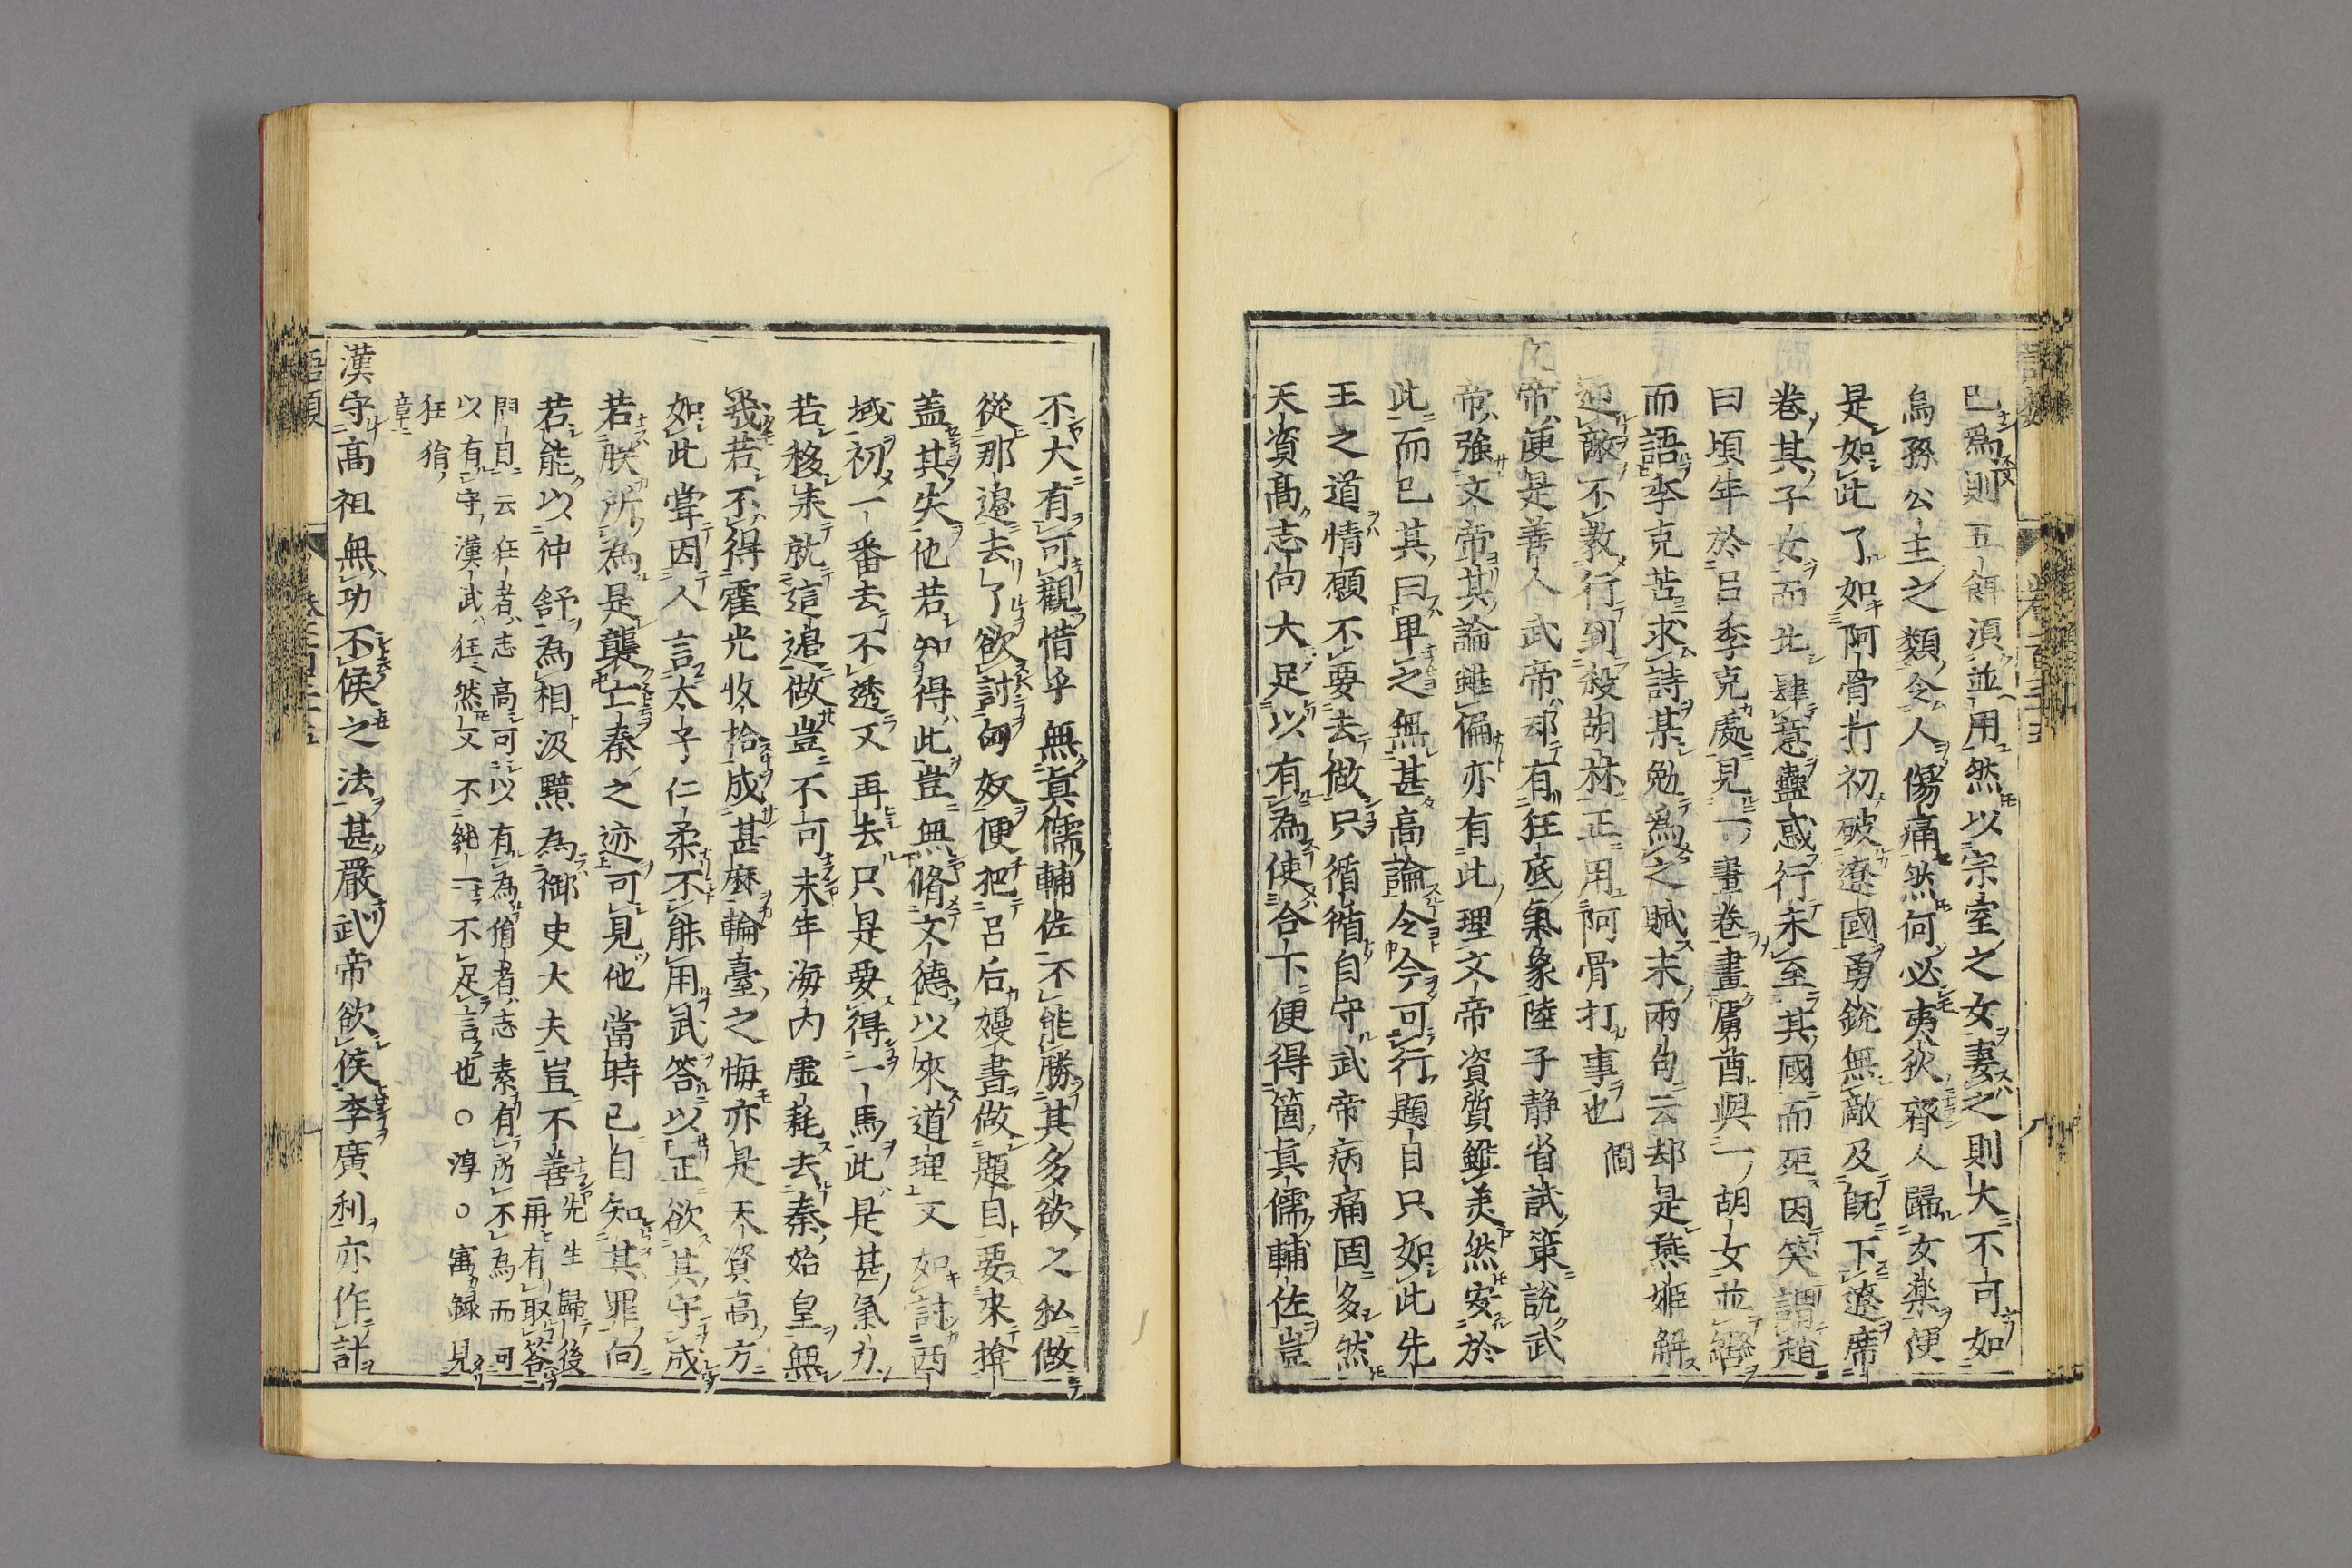 巳爲則五餌湏並用然以宗室之女妻之則大不可如
烏孫公主之類令人傷痛然何必夷狄齊人歸女樂便
是如此了如阿骨打初破遼國勇銳無敵及旣下遼席
卷其子女而北肆意蠱惑行未至其國而死因笑謂趙
曰頃年於呂季克處見一畫卷畫虜酋與一胡女並轡
而語季克苦求詩某勉爲之賦末兩句云却是燕姬解
迎敵不教行到殺胡林正用阿骨打事也 僩
文帝便是善人武帝却有狂底氣象陸子静省試策說武
帝強文帝其論雖偏亦有此理文帝資質雖美然安於
此而已其曰卑之無甚高論令今可行題目只如此先
王之道情願不要去做只循循自守武帝病痛固多然
天資高志向大足以有為使合下便得箇真儒輔佐豈
不大有可觀惜乎無真儒輔佐不能勝其多欲之私做
從那邉去了欲討匈奴便把呂后嫚書做題目要來揜
蓋其失他若知得此豈無脩文德以來道理又如討西
域初一番去不透又再去只是要得一馬此是甚氣力
若移來就這邉做豈不可末年海內虛耗去秦始皇無
幾若不得霍光收拾成甚麽輪臺之悔亦是天資高方
如此嘗因人言太子仁柔不能用武答以正欲其守成
若朕所為是襲亡秦之迹可見他當時已自知其罪向
若能以仲舒為相汲黯為御史大夫豈不善先生歸後
再有取答
問目云狂者志高可以有為狷者志素有所不為而可
以有守漢武狂然又不純一不足言也○淳○㝢録見
狂狷
章
漢守高祖無功不侯之法甚嚴武帝欲侯李廣利亦作計
語類